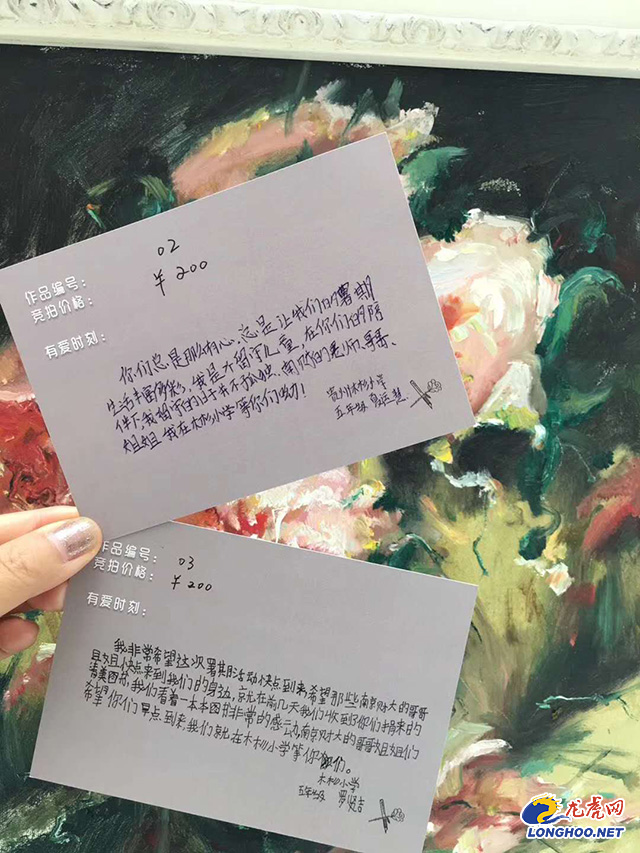 02
作品编号：
竞拍价格： ￥200
有爱时刻：
你们总是那么有心，总是让我们的暑期
生活丰富多彩，我是个留守儿童，在你们的陪
伴下我留守的日子不孤独、南财的老师、哥哥、
姐姐 我在木杉小学等你们哟！
贵州木杉小学
五年级
作品编号： 03
竞拍价格： ￥200
有爱时刻：
我非常希望这次暑期活动快点到来，希望那些南京财大的哥哥
姐姐快点来到我们的身边，就在前几天我们收到你们捐来的
精美图书，我们看着一本本图书非常的感动，南京财大的哥哥姐姐们
希望你们早点到来，我们就在木杉小学等你们。
木杉小学
五年级 罗贤吉
龙虎网
LONGHOO.NET